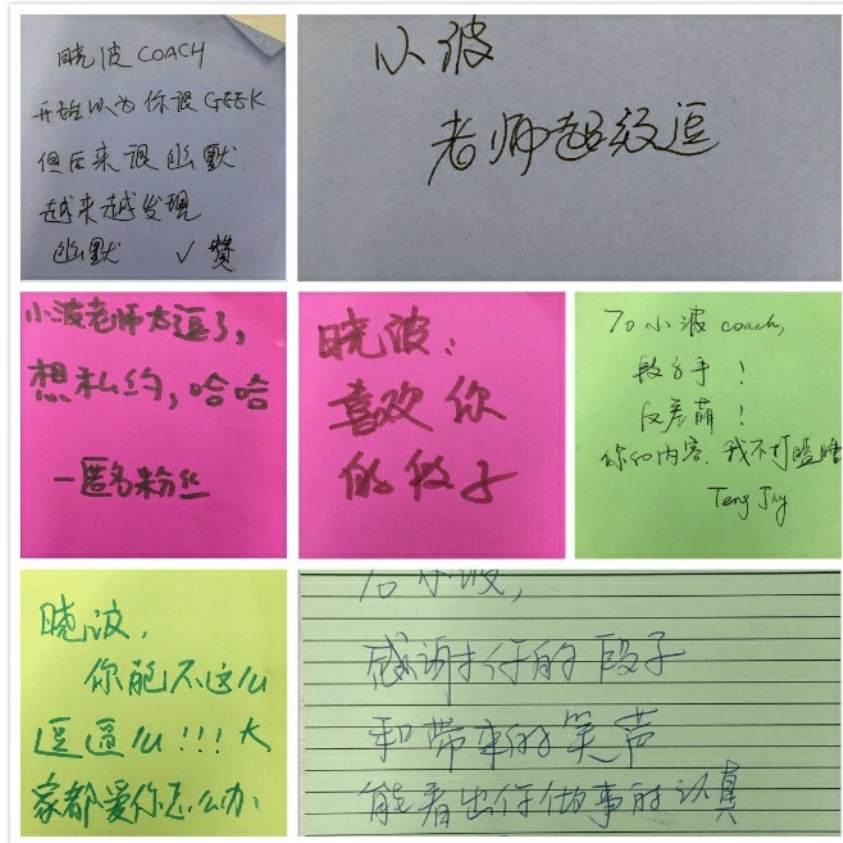 晓波 COACH
开始以为你很 GEEK
但后来很幽默.
越来越发现
幽默 ✓ 赞
小波
老师超级逗
小波老师太逗了,
想私约,哈哈
—匿名粉丝
晓波:
喜欢你
的段子
To 小波 coach,
段子手!
反差萌!
你的内容. 我不打瞌睡
Teng Jry
晓波,
你能不这么
逗逼么!!!大
家都爱你怎么办.
To 小波,
感谢你的段子
和带来的笑声
能看出你做事的认真